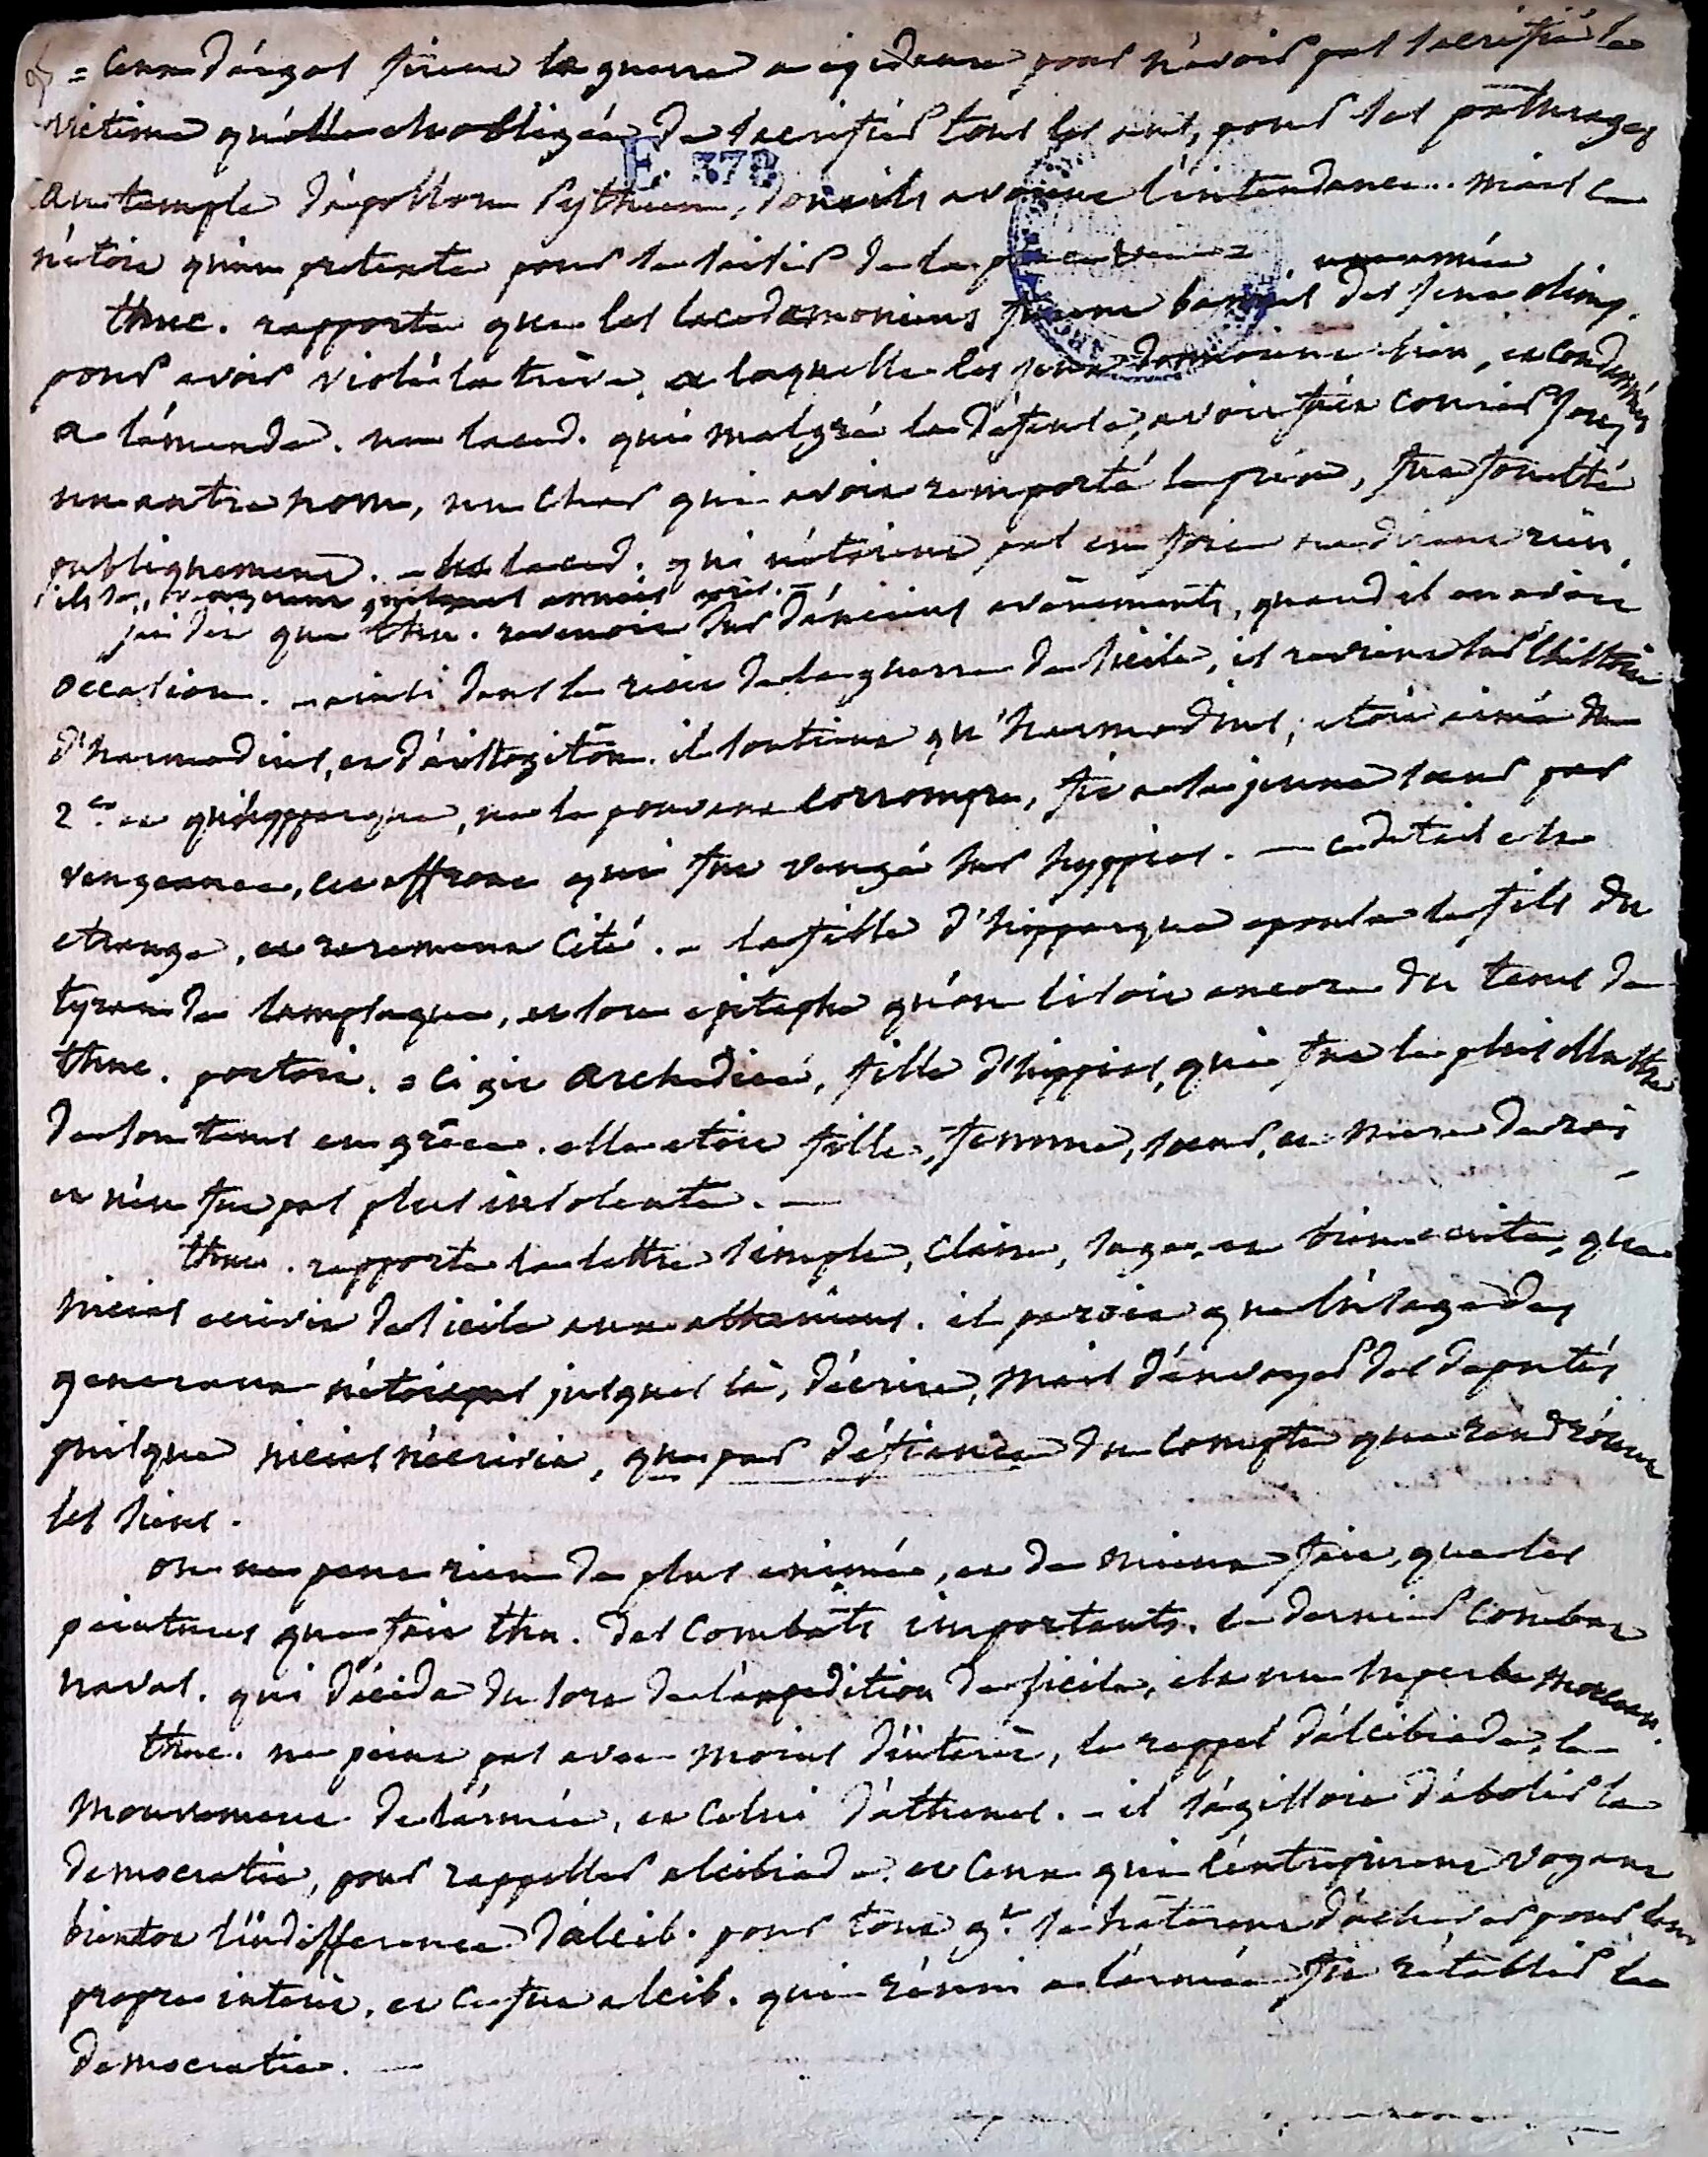 = ceux d'argos firent la guerre a epidaure pour n'avoir pas sacrifié la
victime qu'elle est obligée de sacrifier tous les ans, pour les pâturages
au temple d'apollon Pythien, dont ils avoient l'intendance.. mais ce
n'étoit qu'un pretexte pour se saisir de la
E 378
thuc. rapporte que les lacedemoniens furent bannis des jeux olimp.
pour avoir violé la trève, a laquelle les jeux donnoient lieu, et condamnés
a l'amende. un laced. qui malgré la défense, avoit fait courir sous
un autre nom, un char qui avoit remporté le prix, fut fouetté
publiquement. - les laced. qui n'étoient pas en force ne dirent rien,
ils se vengerent quelques années après. -
j'ai dit que thu. revenoit sur d'anciens avènements, quand il en avoit
occasion. - ainsi dans le récit de la guerre de sicile, il revient sur l'histoire
d'harmodius, et d'aristogiton. il soutient qu'harmodius, étoit aimé du
2.e et qu'hypparque, ne le pouvant corrompre, fit a la jeune sœur par
vengeance, cet affront qui fut vengé sur hyppias. - ce détail est
etrange, et rarement cité. - la fille d'hipparque epousa le fils du
tyran de lampsaque, et son epitaphe qu'on lisoit encore du tems de
thuc. portoit. = ci git archedicé, fille d'hippias, qui fut le plus illustre
de son tems en grèce. elle etoit fille, femme, sœur, et mere de rois
et n'en fut pas plus insolente. -
thuc. rapporte la lettre simple, claire, sage, et bien ecrite, que
nicias ecrivit de sicile aux atheniens. il paroit que l'usage des
generaux n'étoit pas jusques là, d'écrire, mais d'envoyer des deputés
puisque nicias n'écrivit, que par défiance du compte que rendroient
les siens.
on ne peut rien de plus animé, et de mieux fait, que les
peintures que fait thu. des combats importants. le dernier combat
naval. qui décida du sort de l'expedition de sicile, est un superbe morceau.
thuc. ne peint pas avec moins d'intérêt, le rappel d'alcibiade, le
mouvement de l'armée, et celui d'athenes. - il s'agissoit d'abolir la
democratie, pour rappeller alcibiade. et ceux qui l'entreprirent voyant
bientot l'indifference d'alcib. pour tout g.t se hâterent d'achever pour leur
propre intérêt, et ce fut alcib. qui réuni a l'armée fit rétablir la
democratie. -